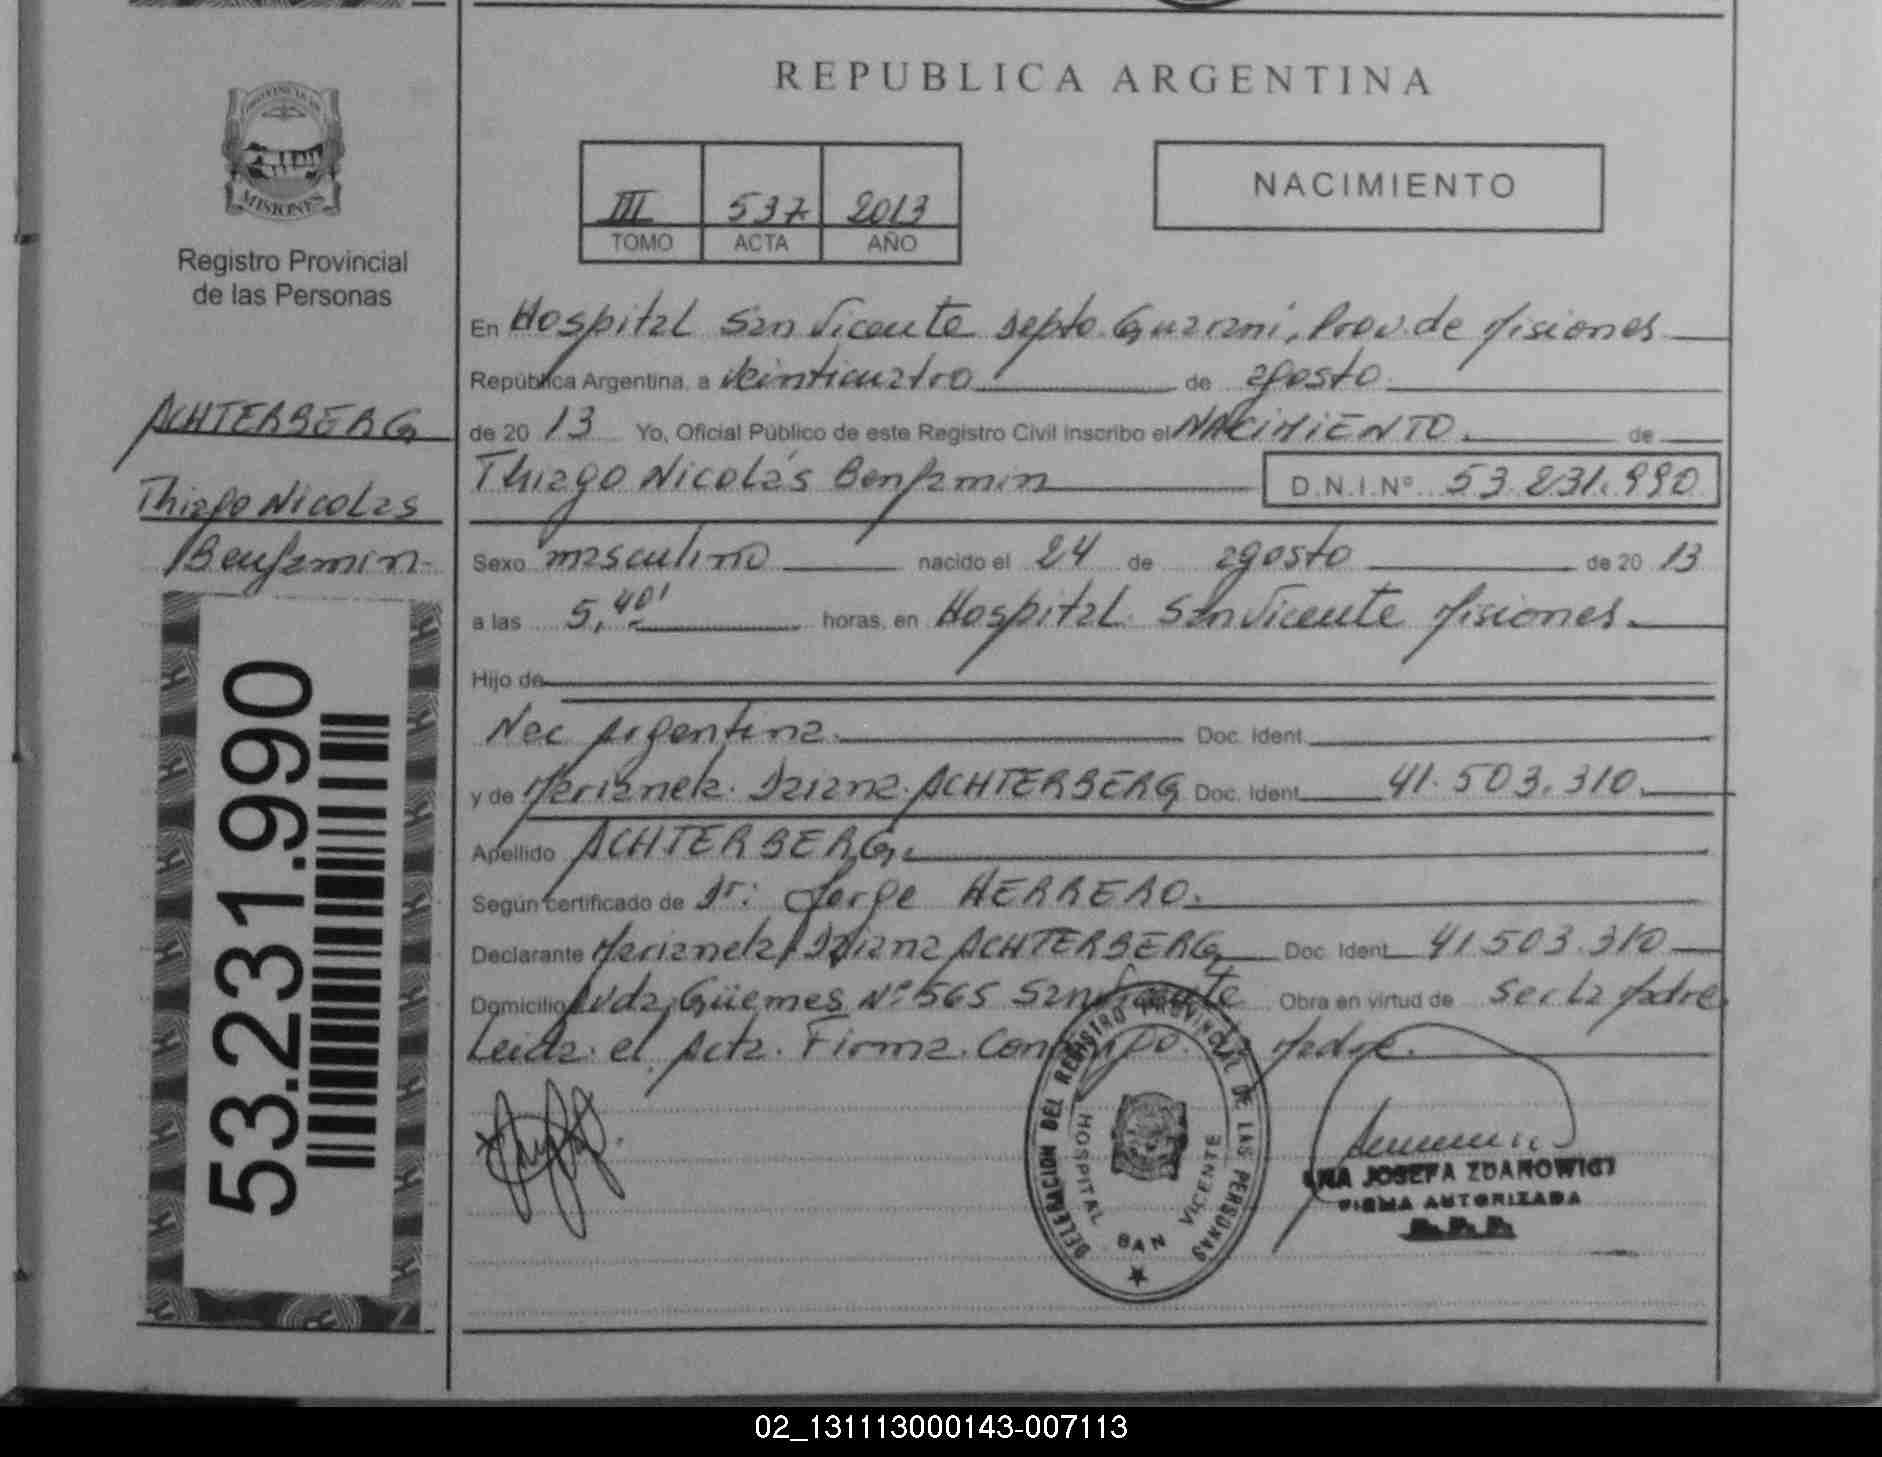 REPUBLICA ARGENTINA
PROVINCIA DE
MISIONES
Registro Provincial
de las Personas
III 537 2013
TOMO ACTA AÑO
NACIMIENTO
ACHTERBERG
Thiago Nicolas
Benjamin
53.231.990
En Hospital San Vicente Depto. Guaraní, Prov. de Misiones
República Argentina, a veinticuatro de agosto
de 20 13 Yo, Oficial Público de este Registro Civil inscribo el NACIMIENTO. de
Thiago Nicolás Benjamin D.N.I.Nº 53.231.990
Sexo masculino nacido el 24 de agosto de 20 13
a las 5,40' horas, en Hospital San Vicente Misiones.
Hijo de
Nac Argentina. Doc. Ident.
y de Marianela Daiana ACHTERBERG Doc. Ident. 41.503.310.
Apellido ACHTERBERG.
Según certificado de Dr: Jorge HERRERO.
Declarante Marianela Daiana ACHTERBERG Doc. Ident. 41.503.310
Domicilio Avda. Güemes Nº 565 San Vicente Obra en virtud de ser la Madre
Leida el Acta. Firma Conmigo. La Madre.
DELEGACION DEL REGISTRO PROVINCIAL DE LAS PERSONAS
HOSPITAL SAN VICENTE
JOSEFA ZDANOWICZ
FIRMA AUTORIZADA
R.P.P.
02_131113000143-007113